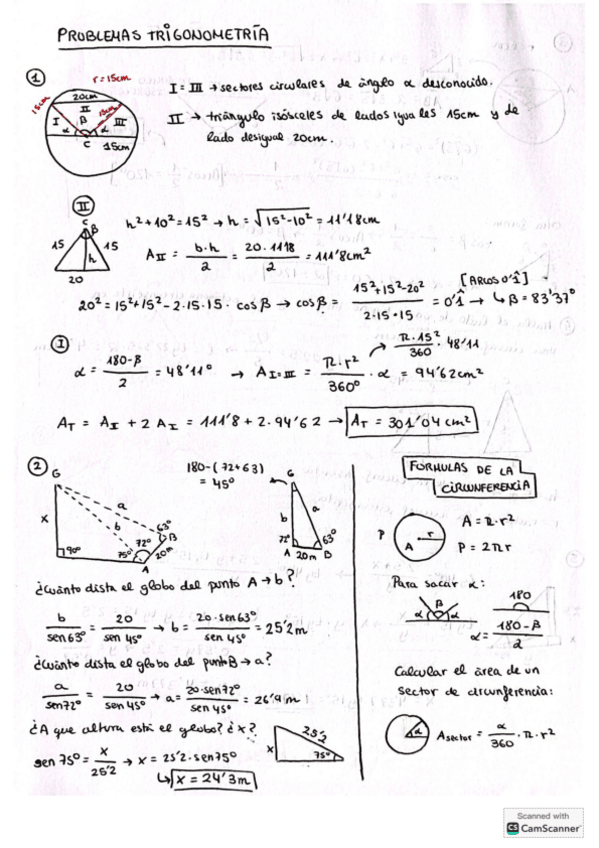 PROBLEMAS TRIGONOMETRÍA
①
r = 15cm
20cm
15cm
15cm
I
II
III
β
α
α
C
15cm
I = III → sectores circulares de ángulo α desconocido.
II → triángulo isósceles de lados iguales 15cm y de
lado desigual 20cm.
II
C
β
15
15
h
20
h² + 10² = 15² → h = √15²-10² = 11'18cm
A II = b·h / 2 = 20·1118 / 2 = 111'8cm²
20² = 15² + 15² - 2·15·15·cos β → cos β = 15²+15²-20² / 2·15·15 = 0'1̂ → [ARCOS 0'1̂] ↳ β = 83'37º
I
α = 180-β / 2 = 48'11º → A I=III = π·r² / 360º · α = 94'62cm²
π·15² / 360 · 48'11
A T = A I + 2 A I = 111'8 + 2·94'62 → A T = 301'04 cm²
②
G
x
a
b
90º
75º
72º
63º
20m
A
B
180-(72+63)
= 45º
G
b
a
72º
63º
A 20m B
¿Cuánto dista el globo del punto A → b?
b / sen63º = 20 / sen 45º → b = 20·sen63º / sen 45º = 25'2m
¿Cuánto dista el globo del punto B → a?
a / sen72º = 20 / sen 45º → a = 20·sen72º / sen 45º = 26'9m
¿A que altura está el globo? ¿x?
sen 75º = x / 25'2 → x = 25'2·sen75º
↳ x = 24'3m
25'2
x
75º
FÓRMULAS DE LA
CIRCUNFERENCIA
P
r
A
A = π·r²
P = 2πr
Para sacar α:
β
α
α
180
α = 180-β / 2
Calcular el área de un
sector de circunferencia:
α
A sector = α / 360 · π·r²
Scanned with
CS CamScanner